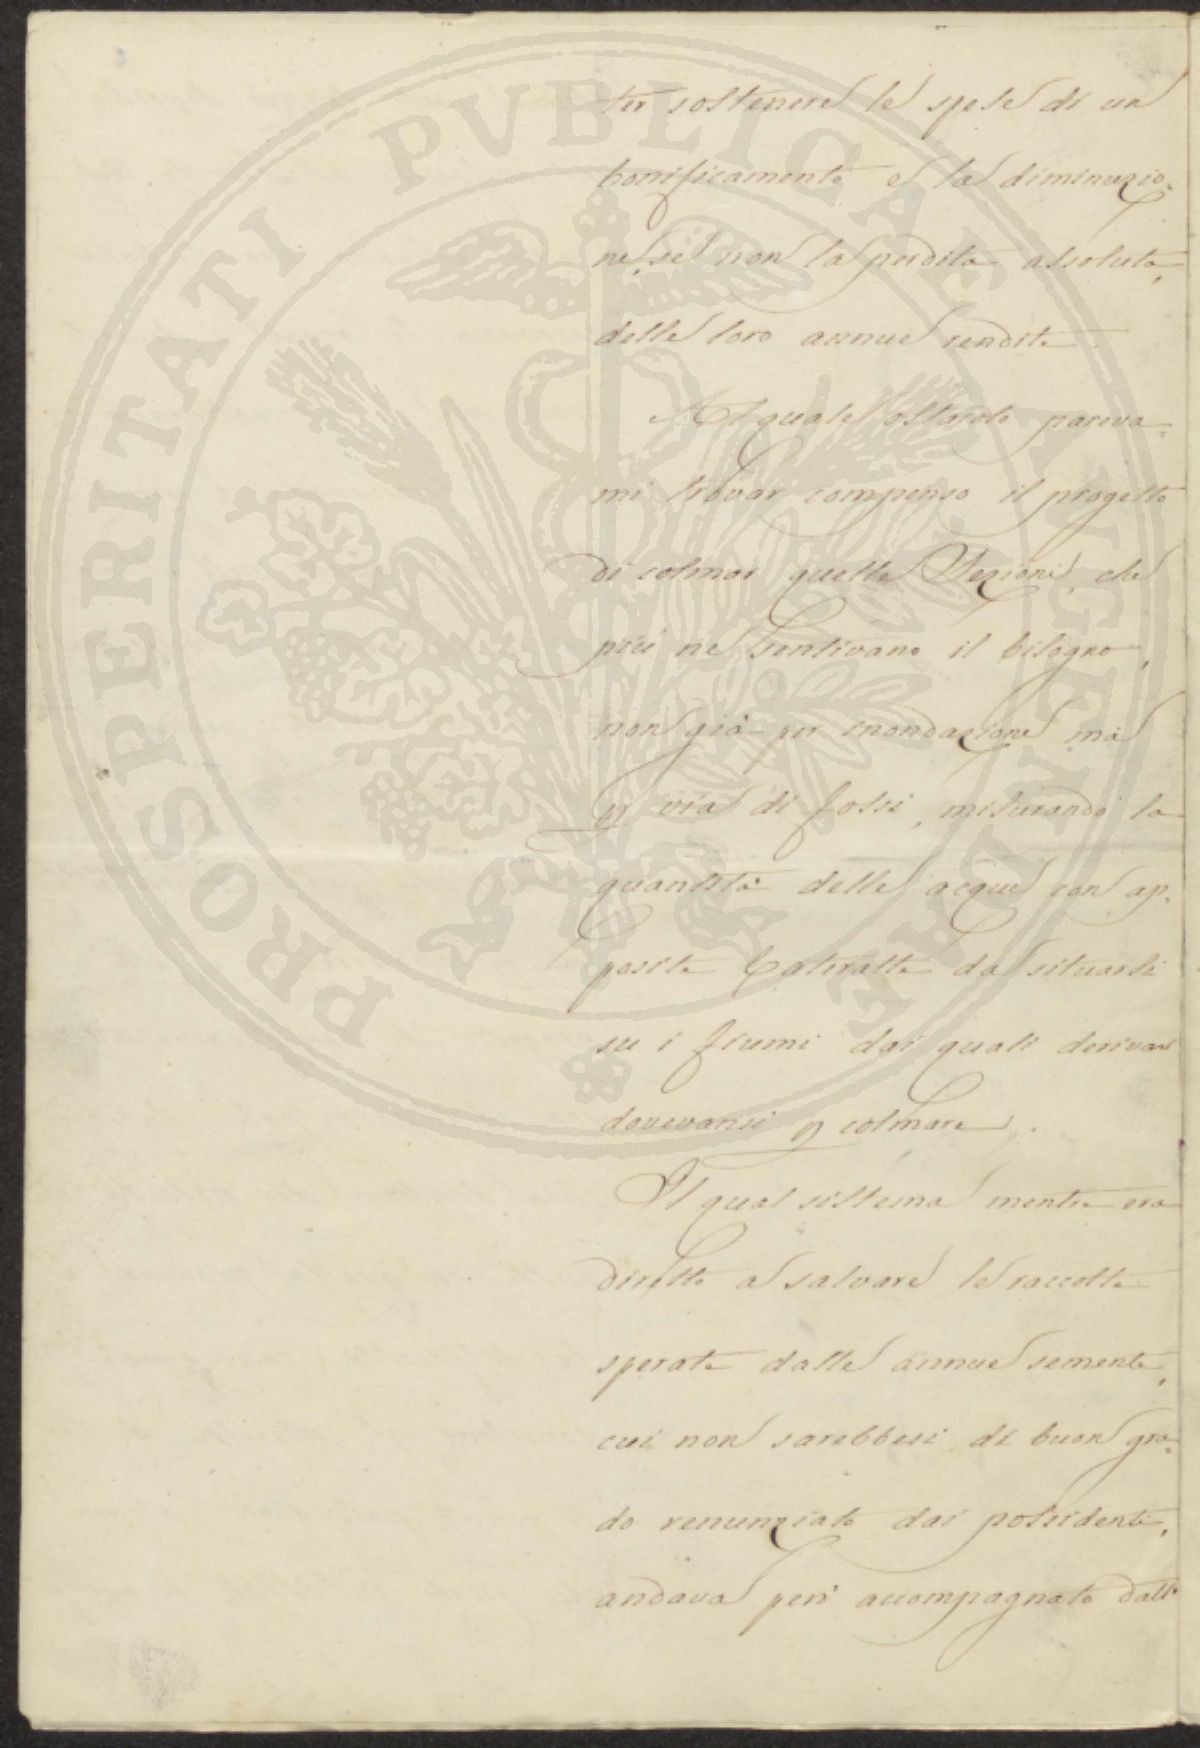 ter sostenere le spese di un
bonificamento e la diminuzio=
ne, se non la perdita assoluta,
delle loro annue rendite.
Al quale ostacolo pareva=
mi trovar compenso il progetto
di colmar quelle Sezioni, che
più ne sentivano il bisogno,
non già per inondazione ma
p via di fossi, misurando la
quantità delle acque con ap=
posite Cateratte da situarsi
su i fiumi dai quali derivar
dovevansi p colmare.
Il qual sistema mentre era
diretto a salvare le raccolte
sperate dalle annue sementi,
cui non sarebbesi di buon gra=
do renunziato dai possidenti,
andava però accompagnato dall'
PROSPERITATI PVBLICAE AVGENDAE